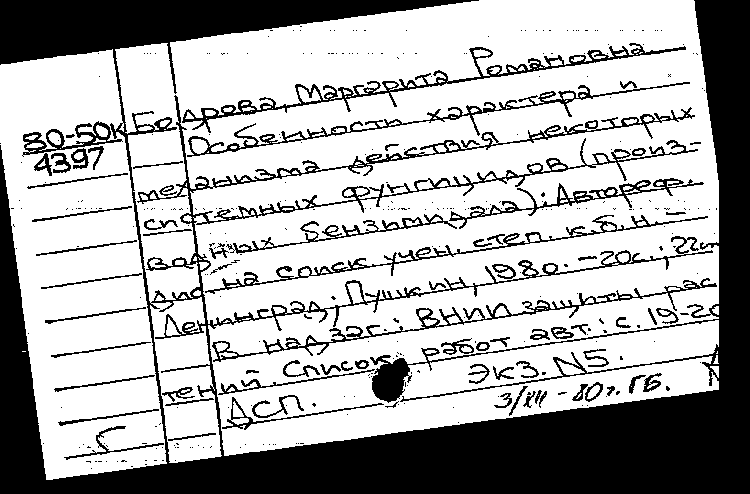 80-50к
4397
Бедрова, Маргарита Романовна
Особенности характера и
механизма действия некоторых
системных фунгицидов (произ-
водных бензимидазола): Автореф.
дис. на соиск. учен. степ. к.б.н. -
Ленинград; Пушкин, 1980. - 20с.; 22см
В надзаг.: ВНИИ защиты рас
тений. Список работ авт.: с. 19-20
ДСП. Экз. N5.
3/XII - 80г. ГБ.